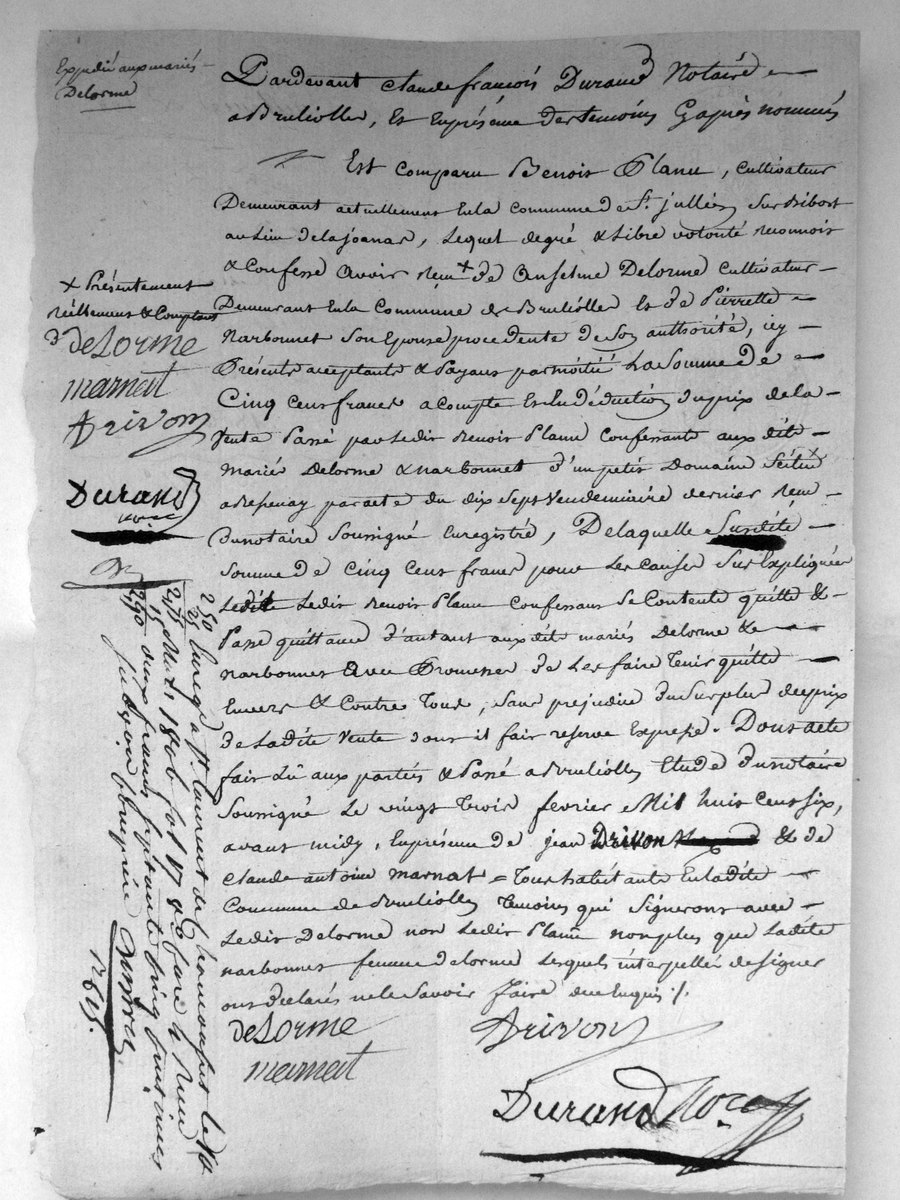 Expedié aux mariés
Delorme
Pardevant Claude françois Durand Notaire
a Brulliolles, Et Enprésence Des temoins Cy après nommés
Est comparu Benoit Planu, cultivateur
Demeurant actuellement En la commune de St. jullien Sur Bibost
au Lieu de la joanas, Lequel de gré & Libre volonté reconnoit
& Confesse avoir reçu + de Anselme Delorme cultivateur
Demeurant En la Commune de Brulliolle Et de Pierrette
Narbonnet Son Epouse procedente de Son authorité, icy
Présents acceptants & Payans par moitié La Somme de
Cinq cens francs a compte Et En Déduction du prix de la
vente Passé par Ledit Benoit Planu Confessant aux dits
mariés Delorme & narbonnet d'un petit Domaine Scitué
a par acte du dix Sept vendemiaire dernier reçu
du notaire Soussigné Enregistré, De laquelle Susdite
Somme de Cinq Cens francs pour Les causes Sus Expliquées
Ledit Benoit Planu Confessant Se Contente quitte &
Passe quittance d'autant aux dits mariés Delorme &
narbonnet avec Promesse de Les faire Tenir quitte
Envers & Contre Tous, Sans prejudice du Surplus du prix
de Ladite vente dont il fait reserve Expresse. Dont acte
fait Lû aux parties & Passé a Brulliolles Etude du notaire
Soussigné Le vingt trois fevrier Mil huit cens Six,
avant midy, Enpresence de jean Drivon & de
Claude antoine marnat Tous habitants En la dite
Commune de Brulliolles Temoins qui Signerons avec
Ledit Delorme non Ledit Planu nonplus que La dite
narbonnet femme delorme Lesquels interpellés de Signer
ont declarés ne le Savoir faire de ce Enquis ./.
deLorme
Drivon
marnat
Durand Nore
+ Présentement
réellement & Comptant
deLorme
marnat
Drivon
Durand
Nore
250
25
275
15
290
Enreg. a St. Laurent de Chamousset le
Mars 1806 fol 17 Reçu
deux francs septante cinq centimes